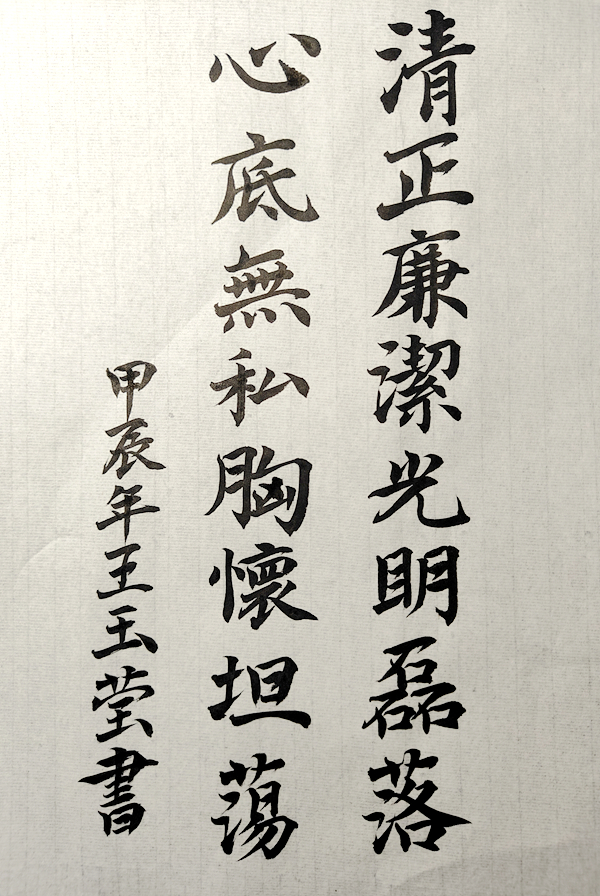 清正廉潔光明磊落
心底無私胸懷坦蕩
甲辰年王玉莹書